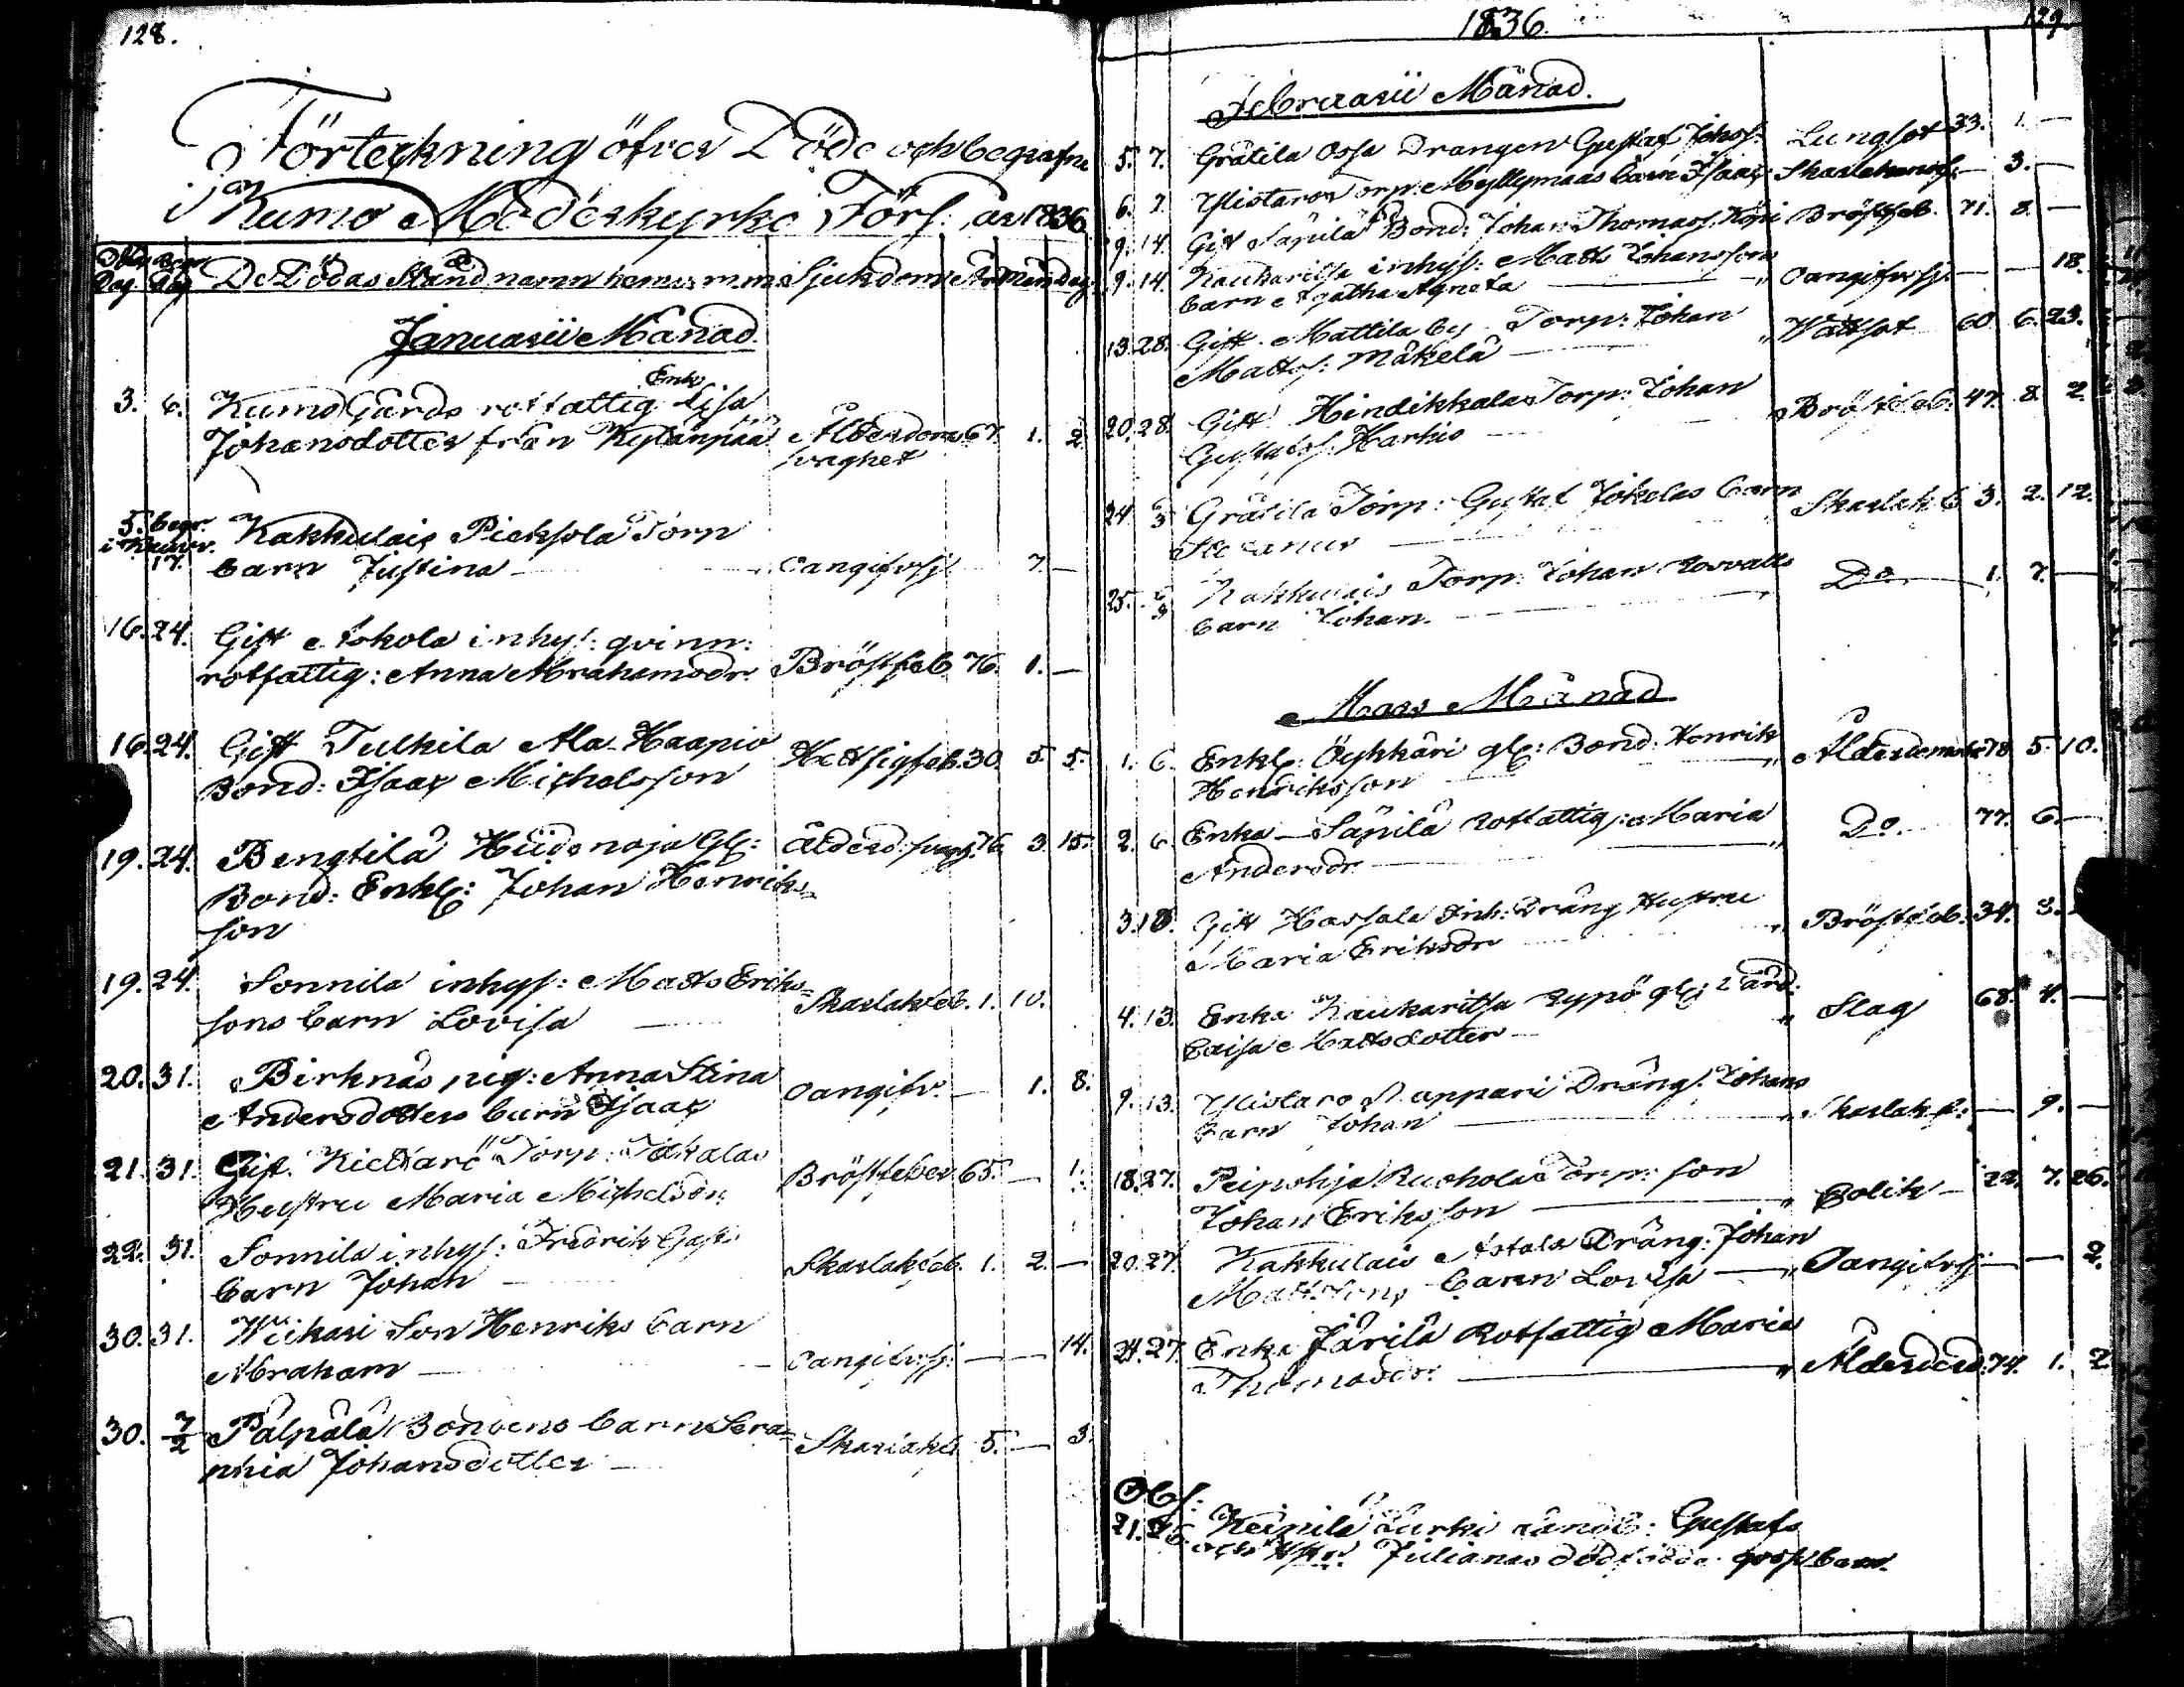 128.
Förteckning öfver Döde och begrafne
i Kumo Moderkyrko Förs: år 1836
Döds Dag Begr. Dag De Dödas Stånd namn hemv. m.m. Sjukdom År Mån Dag
Januarii Månad.
Enk.
3. 6. Kumo Gårds rotfattig Lisa
Johansdotter från Kylänpää Ålderdoms 67. 1. 2
svaghet
5. begr. Kakkulais Pieksola Torp
17. barn Justina — oangifvsj. 7. —
16. 24. Gift Askola inhys: qvinn:
rotfattig: Anna Abrahamsdr. Bröstfeb. 76. 1. —
16. 24. Gift Tulkila Ala-Haapio Hettsigfeb. 30. 5. 5.
Bond: Isaac Michelsson
19. 24. Bengtilä Hiidenoja Gl: Ålderd. svagh. 76. 3. 15.
Bond: Enkl: Johan Henriks=
son
19. 24. Sonnila inhys: Matts Eriks=
sons barn Lovisa — Skarlakfeb. 1. 10.
20. 31. Birknäs pig: Anna Stina oangifv. — 1. 8.
Andersdotters barn Isaac
21. 31. Gift. Kiettare Torp: Jakalas Bröstfeber 65. — 1.
Hustru Maria Michelsdr.
22. 31. Sonnila inhys: Fredrik
barn Johan — Skarlakfeb. 1. 2. —
30. 31. Wiikari Son Henriks barn
Abraham — oangifvsj. — — 14.
30. 7/2 Pälpälä Bondens barn Sera=
phia Johansdotter — Skarlakfeb. 5. — 3.
1836. 129.
Februarii Månad.
5. 7. Gräsila Ossa Drängen Gustaf Johss. Lungsot 33. 1. —
6. 7. Ylistaro Torp: Myllymaas barn Isaac Skarlakansf. — 3. —
9. 14. Gift Säpilä Bond: Johan Thomass. Köpi Bröstfeb. 71. 8. —
9. 14. Kaukaritsa inhys: Matts Johanssons
barn Agatha Agneta — „ oangifvsj. — — 18.
13. 28. Gift Mattila by Torp: Johan „ Wattsot 60 6. 23.
Mattss: Mäkelä —
20. 28. Gift Hindikkala Torp: Johan „ Bröstfeb. 47. 8. 2
Gustafss: Harkio —
24. 6/3 Gräsila Torp: Gustaf Jokelas barn Skarlakfeb 3. 2. 12.
—
25. 6/3 Kakkulais Torp: Johan D:o 1. 7. —
barn Johan. —
Mars Månad
1. 6. Enkl: Öykkäri gl: Bond: Henrik „ Ålderdomsv: 78 5. 10.
Henriksson —
2. 6. Enka — Säpilä Rotfattig: Maria „ D:o 77. 6. —
Andersdr. —
3. 13. Gift Hassala Inh: Dräng Hustru „ Bröstfeb: 34. 3.
Maria Eriksdr —
4. 13. Enka Kaukaritsa Rypö gl: Värd: „ Slag 68. 4. —
Caisa Mattsdotter —
9. 13. Ylistaro Nappari Dräng: Johans
barn Johan — „ Skarlakf: — 9. —
18. 27. Peipohja Ruohola Torp: son
Johan Eriksson — „ Colik — 22. 7. 26.
20. 27. Kakkulais Astala Dräng: Johan
Mattssons barn Lovisa — „ Oangifvsj — — 2.
24. 27. Enka Järilä Rotfattig Maria
Thomasdr: — „ Ålderdsv: 74. 1. 2
Obs:
21. Keipilä Lurki Landb: Gustafs
och Hstr Julianas dödfödde goss barn.